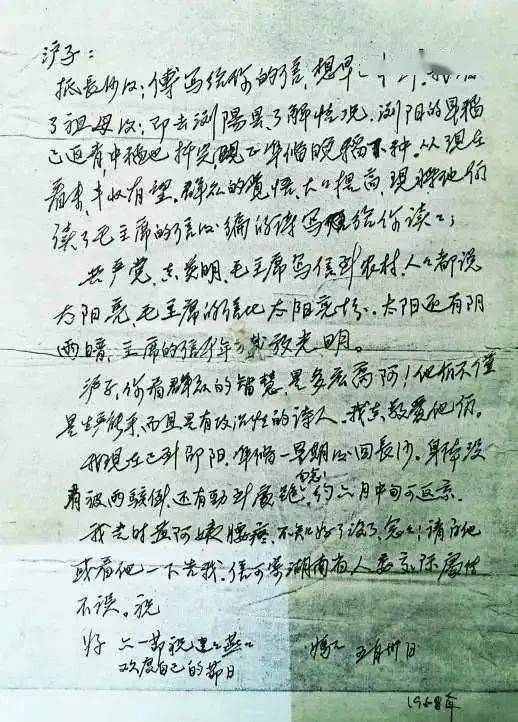 沪子：
抵長沙后：傅写给你的信，想早
了祖母后；即去浏陽县了解情况，浏阳的早稻
已返青，中稻也插完，现正準备晚稻下种。从现在
看来，丰收有望。群众的觉悟大大提高，現將他们
读了毛主席的信后编的诗写给你读：
共产党，真英明，毛主席写信到农村，人人都说
太阳亮，毛主席的信比太阳亮十分。太阳还有阴
雨時，主席的信千年万載放光明。
沪子，你看群众的智慧，是多么高阿！他们不僅
是生产能手，而且是有政治性的诗人。我真敬爱他们。
我现在已到邵阳，準备一星期后回長沙。身体没
有被两腿倒，还有勁到處跑，勿念！约六月中旬可返京。
我去时燕阿姨腰痛，不知好了没有，怎么；請问他
或看他一下告我。信可寄湖南省人委交际處
不误。祝
好 六一節祝
欢度自己的節日
媽 五月卅日
19 8年